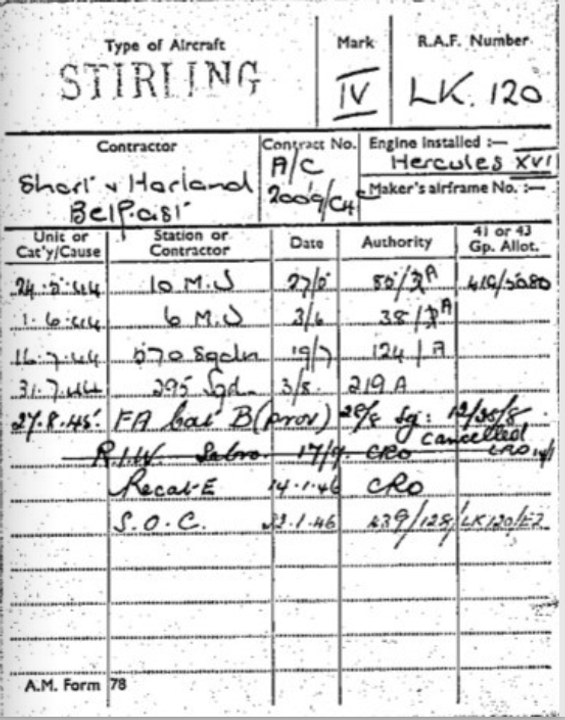 Type of Aircraft Mark R.A.F. Number
STIRLING IV LK. 120
Contractor Contract No. Engine installed :—
Short & Harland A/C Hercules XVI
Belfast 2009/C4 Maker's airframe No. :—
Unit or Cat'y/Cause Station or Contractor Date Authority 41 or 43 Gp. Allot.
24.5.44 10 M.U 27/5 416/5080
1.6.44 6 M.U 3/6 38/
16.7.44 570 Sqdn 19/7 124/A
31.7.44 295 Sqd. 3/8. 219 A
27.8.45 FA Cat B (prov) 28/8 Sg: 12/35/8
cancelled
R.I.W. Sebro. 17/9. CRO CRO
Recat-E 14.1.46 CRO
S.O.C. .1.46 /128/LK120/E2
A.M. Form 78